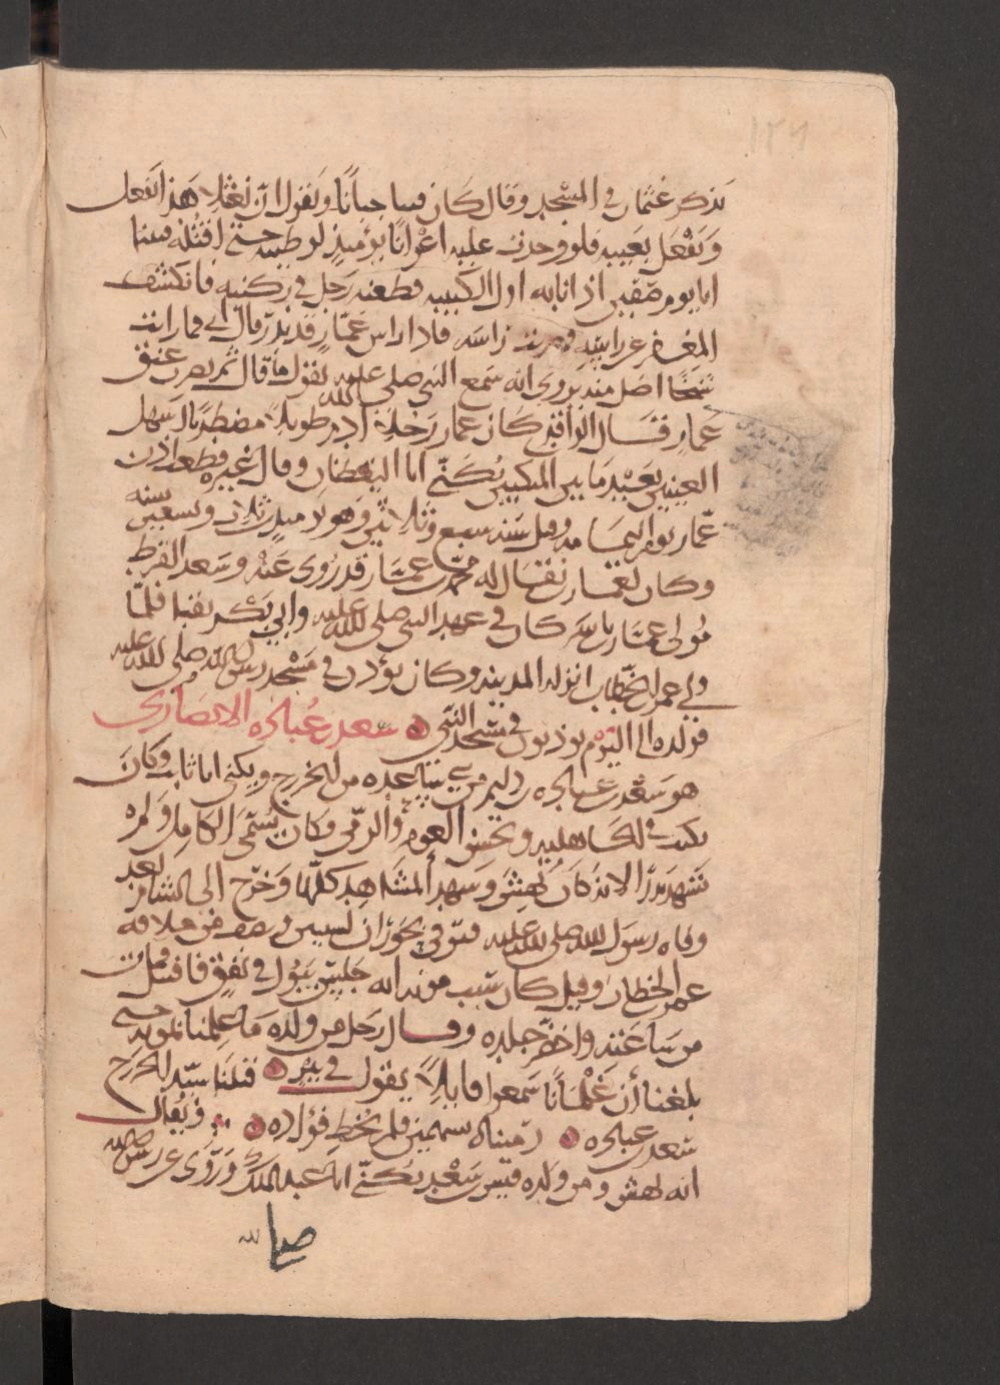 ١٢٦
يذكر عثمان في المسجد وقال كان فينا جبانا ويقول ان نعثلا هذا يفعل
ويفعل يعيبه فلو وجدت عليه اعوانا يومئذ لوطيته حتى اقتله فبينا
انا يوم صفين اذ انا به اول الكتيبه فطعنه رجل في ركبته فانكشف
المغفر عن راسه فضربت راسه فاذا راس عمار قد ندر قال اي فما رايت
شيخا اضل منه يروي انه سمع النبي صلى الله عليه يقول ما قال ثم ضرب عنق
عمار وقال الواقدي كان عمار رجلا ادم طويلا مضطربا اشهل
العينين بعيد ما بين المنكبين يكنى ابا اليقظان وقال غيره قطعت اذن
عمار يوم اليمامه وقتل سنه سبع وثلاثين وهو ابن ثلاث وتسعين سنه
وكان لعمار ابن يقال له محمد بن عمار قد روي عنه وسعد القرظ
مولى عمار بن ياسر كان في عهد النبي صلى الله عليه وابي بكر بقبا فلما
ولي عمر بن الخطاب انزله المدينه وكان يؤذن في مسجد رسول الله صلى الله عليه
فولده الى اليوم يوذنون في مسجد النبي سعد بن عباده الانصاري
هو سعد بن عباده بن دليم من بني ساعده من الخزرج ويكنى ابا ثابت وكان
يكتب في الجاهليه ويحسن العوم والرمي وكان يسمى الكامل ولم
يشهد بدرا لانه كان نهش وشهد المشاهد كلها وخرج الى الشام بعد
وفاه رسول الله صلى الله عليه فتوفي بحوران لسنتين ونصف من خلافه
عمر بن الخطاب وقيل كان سبب موته انه جلس يبول في نفق فاقتتل فمات
من ساعته واخضر جلده وقال رجل من ولده ما علمنا بموته حتى
بلغنا أن غلمانا سمعوا قايلا يقول في بير قتلنا سيد الخزرج
سعد بن عباده رميناه بسهمين فلم نخط فؤاده ويقال
انه نهش ومن ولده قيس بن سعد يكنى ابا عبد الملك وروى عن رسول الله
صلى الله